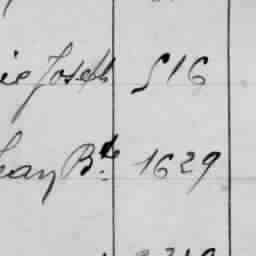 ie Joseph 516
Jean Bte 1629